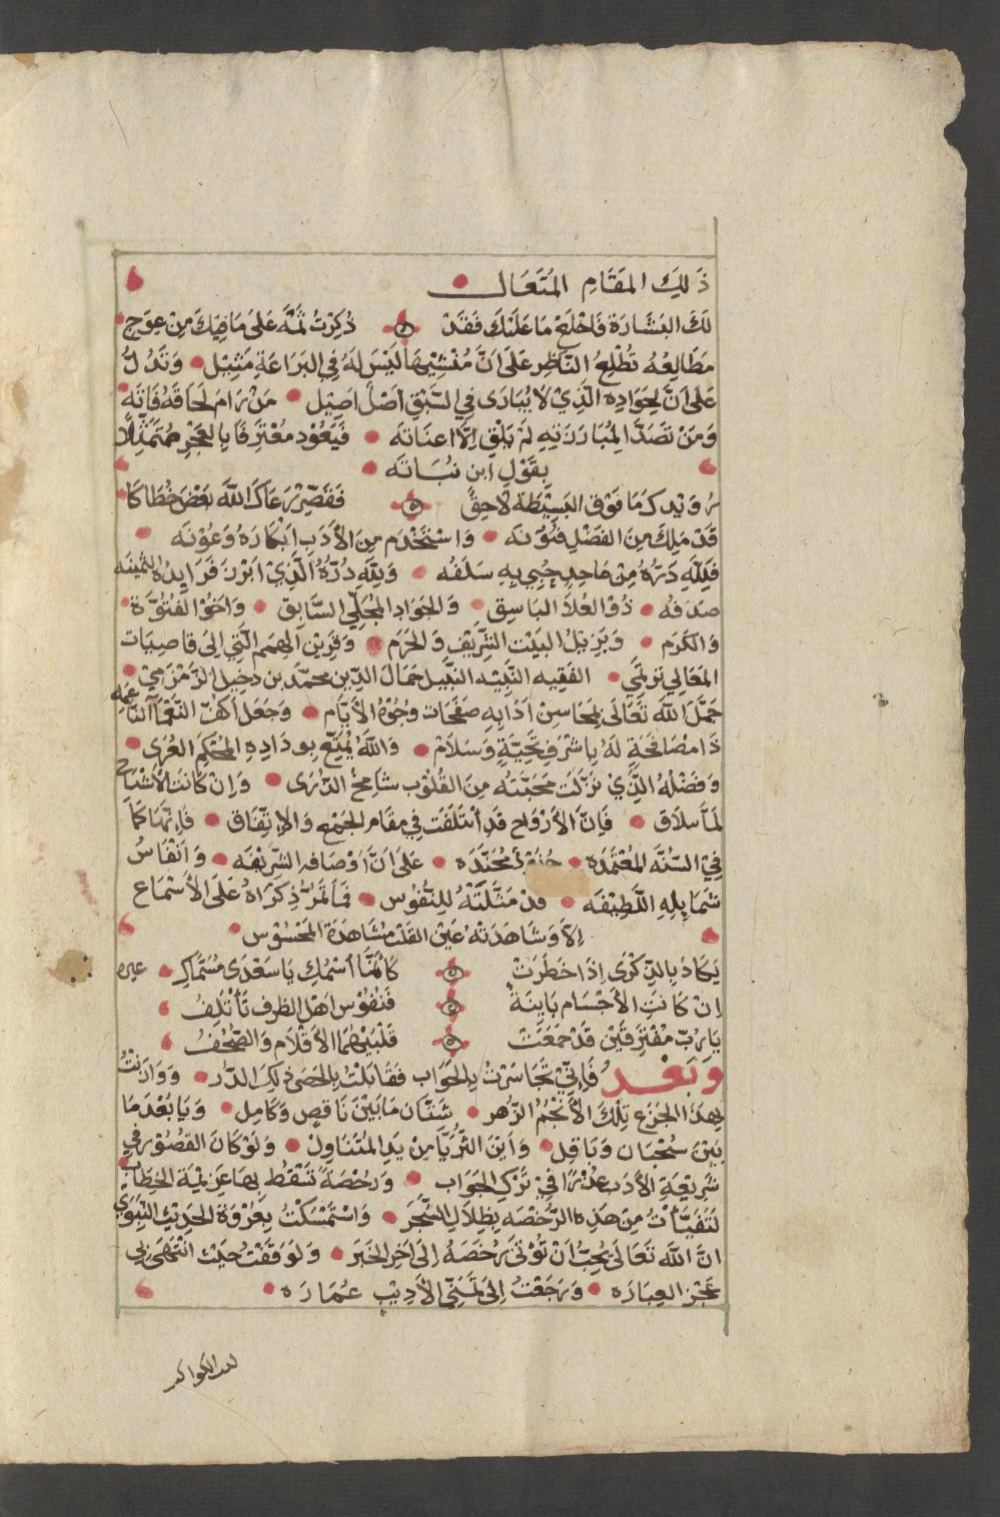 ذَلِكَ المَقَامِ المُتَعَال
لَكَ البَشَارَة فَاخْلَعْ مَا عَلَيْكَ فَقَدْ ذُكِرْتَ ثَمَّهْ عَلَى مَا فِيكَ مِنْ عِوَجِ
مَطَالِعِهِ تُطْلِعُ النَّاظِر عَلَى اَنَّ مُنْشِيْهَا لَيْسَ لَهُ فِي البَرَاعَةِ مَثِيْل وَتَدُلُّ
عَلَى اَنَّ لِجَوَادِهِ الَّذِيْ لَا يُبَارَى فِي السَّبْقِ اَصْلٌ اَصِيْل مَنْ رَامَ لَحَاقَهُ فَاتَه
وَمَنْ تَصَدَّا لِمُبَارَرَتِهِ لَمْ يَلْقِ اِلَّا عِنَانَه فَيَعُوْد مُعْتَرِفًا بِالعَجْزِ مُتَمَثِّلًا
بِقَوْلِ ابن نُبَاتَه
رُوَيْدكَ مَا فَوْقَ البَسِيْطَة لَاحِقٌ فَقَصِّرْ رَعَاكَ اللَّه بَعْضَ خُطَاكَا
قَدْ مَلِكَ مِنَ الفَضْلِ فُنُوْنَه وَاسْتَخْدَم مِنَ الأَدَبِ اَبْكَارَهُ وَعُوْنَه
فَلِلَّهِ دَرُّهُ مِنْ مَاجِدٍ حُيِيَ بِهِ سَلَفُه وَلِلَّهِ دُرُّهُ الَّذِيْ اَبْرَزَ فَرَايِدُه الثمينَه
صَدَفُه ذُوْ العُلَا البَاسِق وَالجَوَادِ المُجَلِّي السَّابِق وَاخُوْ الفُتُوَّة
وَالكَرَم وَنَزِيلُ البَيْت الشَّرِيْف وَالحَرَم وَقَرِيْن الهِمَمِ الَّتِي اِلَى قَاصِيَات
المَعَالِي تَرْتَمِي الفَقِيه النَّبِيْه النَّبِيْل جَمَالَ الدِّين محمَّد بن دخِيل الزَّمْزَمِي
جَمَّلَ اللَّه تَعَالَى بِمَحَاسِنْ اَدَابِهِ صَفَحَات وُجُوْهَ الأَيَّام وَجَعَل اَكُفَّ النَّعْمَآ النَّاعِمَه
ذَا مصَافَحَةٍ لَهُ بِاَشْرَفِ تَحِيَّةٍ وَسَلَام وَاللَّهُ يُمَتِّع بِوِدَادِهِ المُحْكَمِ العُرَى
وَفَضْلُهُ الَّذِيْ نَزَلَتْ مَحَبَّتُه مِنَ القُلُوْب شَامِخْ الذُّرَى وَاِنْ كَانَتِ الأَشْبَاحُ
لَمَّا تَلَاق فَاِنَّ الأَرْوَاح قَدِ اْئتَلَفَتْ فِي مقَامِ الجَمْعِ وَالاِتِّفَاق فَاِنَّهَا كَمَا
فِيْ السُّنَّه المُعْتَمَدَه جُنُوْدٌ مُجَنَّدَه عَلَى اَنَّ اَوْصَافه الشَّرِيْفَه وَاَنْفَاسُ
شَمَايِلِهِ اللَّطِيْفَه قدْ مَثَّلَتْهُ لِلنُّفُوْس فَمَا تَمُرُّ ذِكْرَاهُ عَلَى الأَسْمَاع
اِلَّا وَشَاهَدَتْه عَيْن القَلب مشَاهَدَةَ المَحْسُوْس
يَكَادُ بِالذِّكْرَى اِذَا خَطَرَتْ كَاَنَّمَا اَسْمُكِ يَا سَعْدَى مُسَمَّاكِ غيره
اِنْ كَانَتِ الأَجْسَام بَايِنَةً فَنُفُوْس اَهْل الظرف تَأْتَلِفُ
يَا رُبَّ مُفْتَرِقَيْن قَدْ جَمَعَتْ قَلْبَيْهُمَا الأَقْلَام وَالصُّحُفُ
وَبَعْد فَاِنِّيْ تَجَاسَرْتُ بِالجَوَاب فَقَابَلْتُ بِالحَصَى ذَلِكَ الدُّر وَوَازَنْتُ
بِهَذَا الجَزْعِ تِلْكَ الأَنْجُمَ الزُّهر شَتَّان مَا بَيْنَ نَاقِصٍ وَكَامِل وَيَا بُعْدَ مَا
بَيْنَ سُحْبَان وَبَاقِل وَاَيْنَ الثُّرَيَّا مِنْ يَدِ المُتَنَاوِل وَلَوْ كَانَ القُصُوْر فِي
شَرِيْعَةِ الأَدَبِ عُذْرًا فِيْ تَرْكِ الجَوَاب وَرُخْصَةً تَسْقُط بِهَا عَزِيْمَة الخِطَاب
لَتَفَيَّأْتُ مِنْ هَذِهِ الرُّخْصَه بِظِلَالِ الشَّجَر وَاسْتَمْسَكْتُ بِعُرْوَة الحَدِيْثِ النَّبَوِي
اِنَّ اللَّه تَعَالَى يُحِبُّ اَنْ تُؤْتَى رُخَصَهُ اِلَى آخِرِ الخَبَر وَلَوْ وَقَفْتُ حَيْثُ انْتَهَى بِي
عَجْزُ العِبَارَه وَرَجَعْتُ اِلَى تَمَنِّي الأَدِيْبِ عُمَارَه